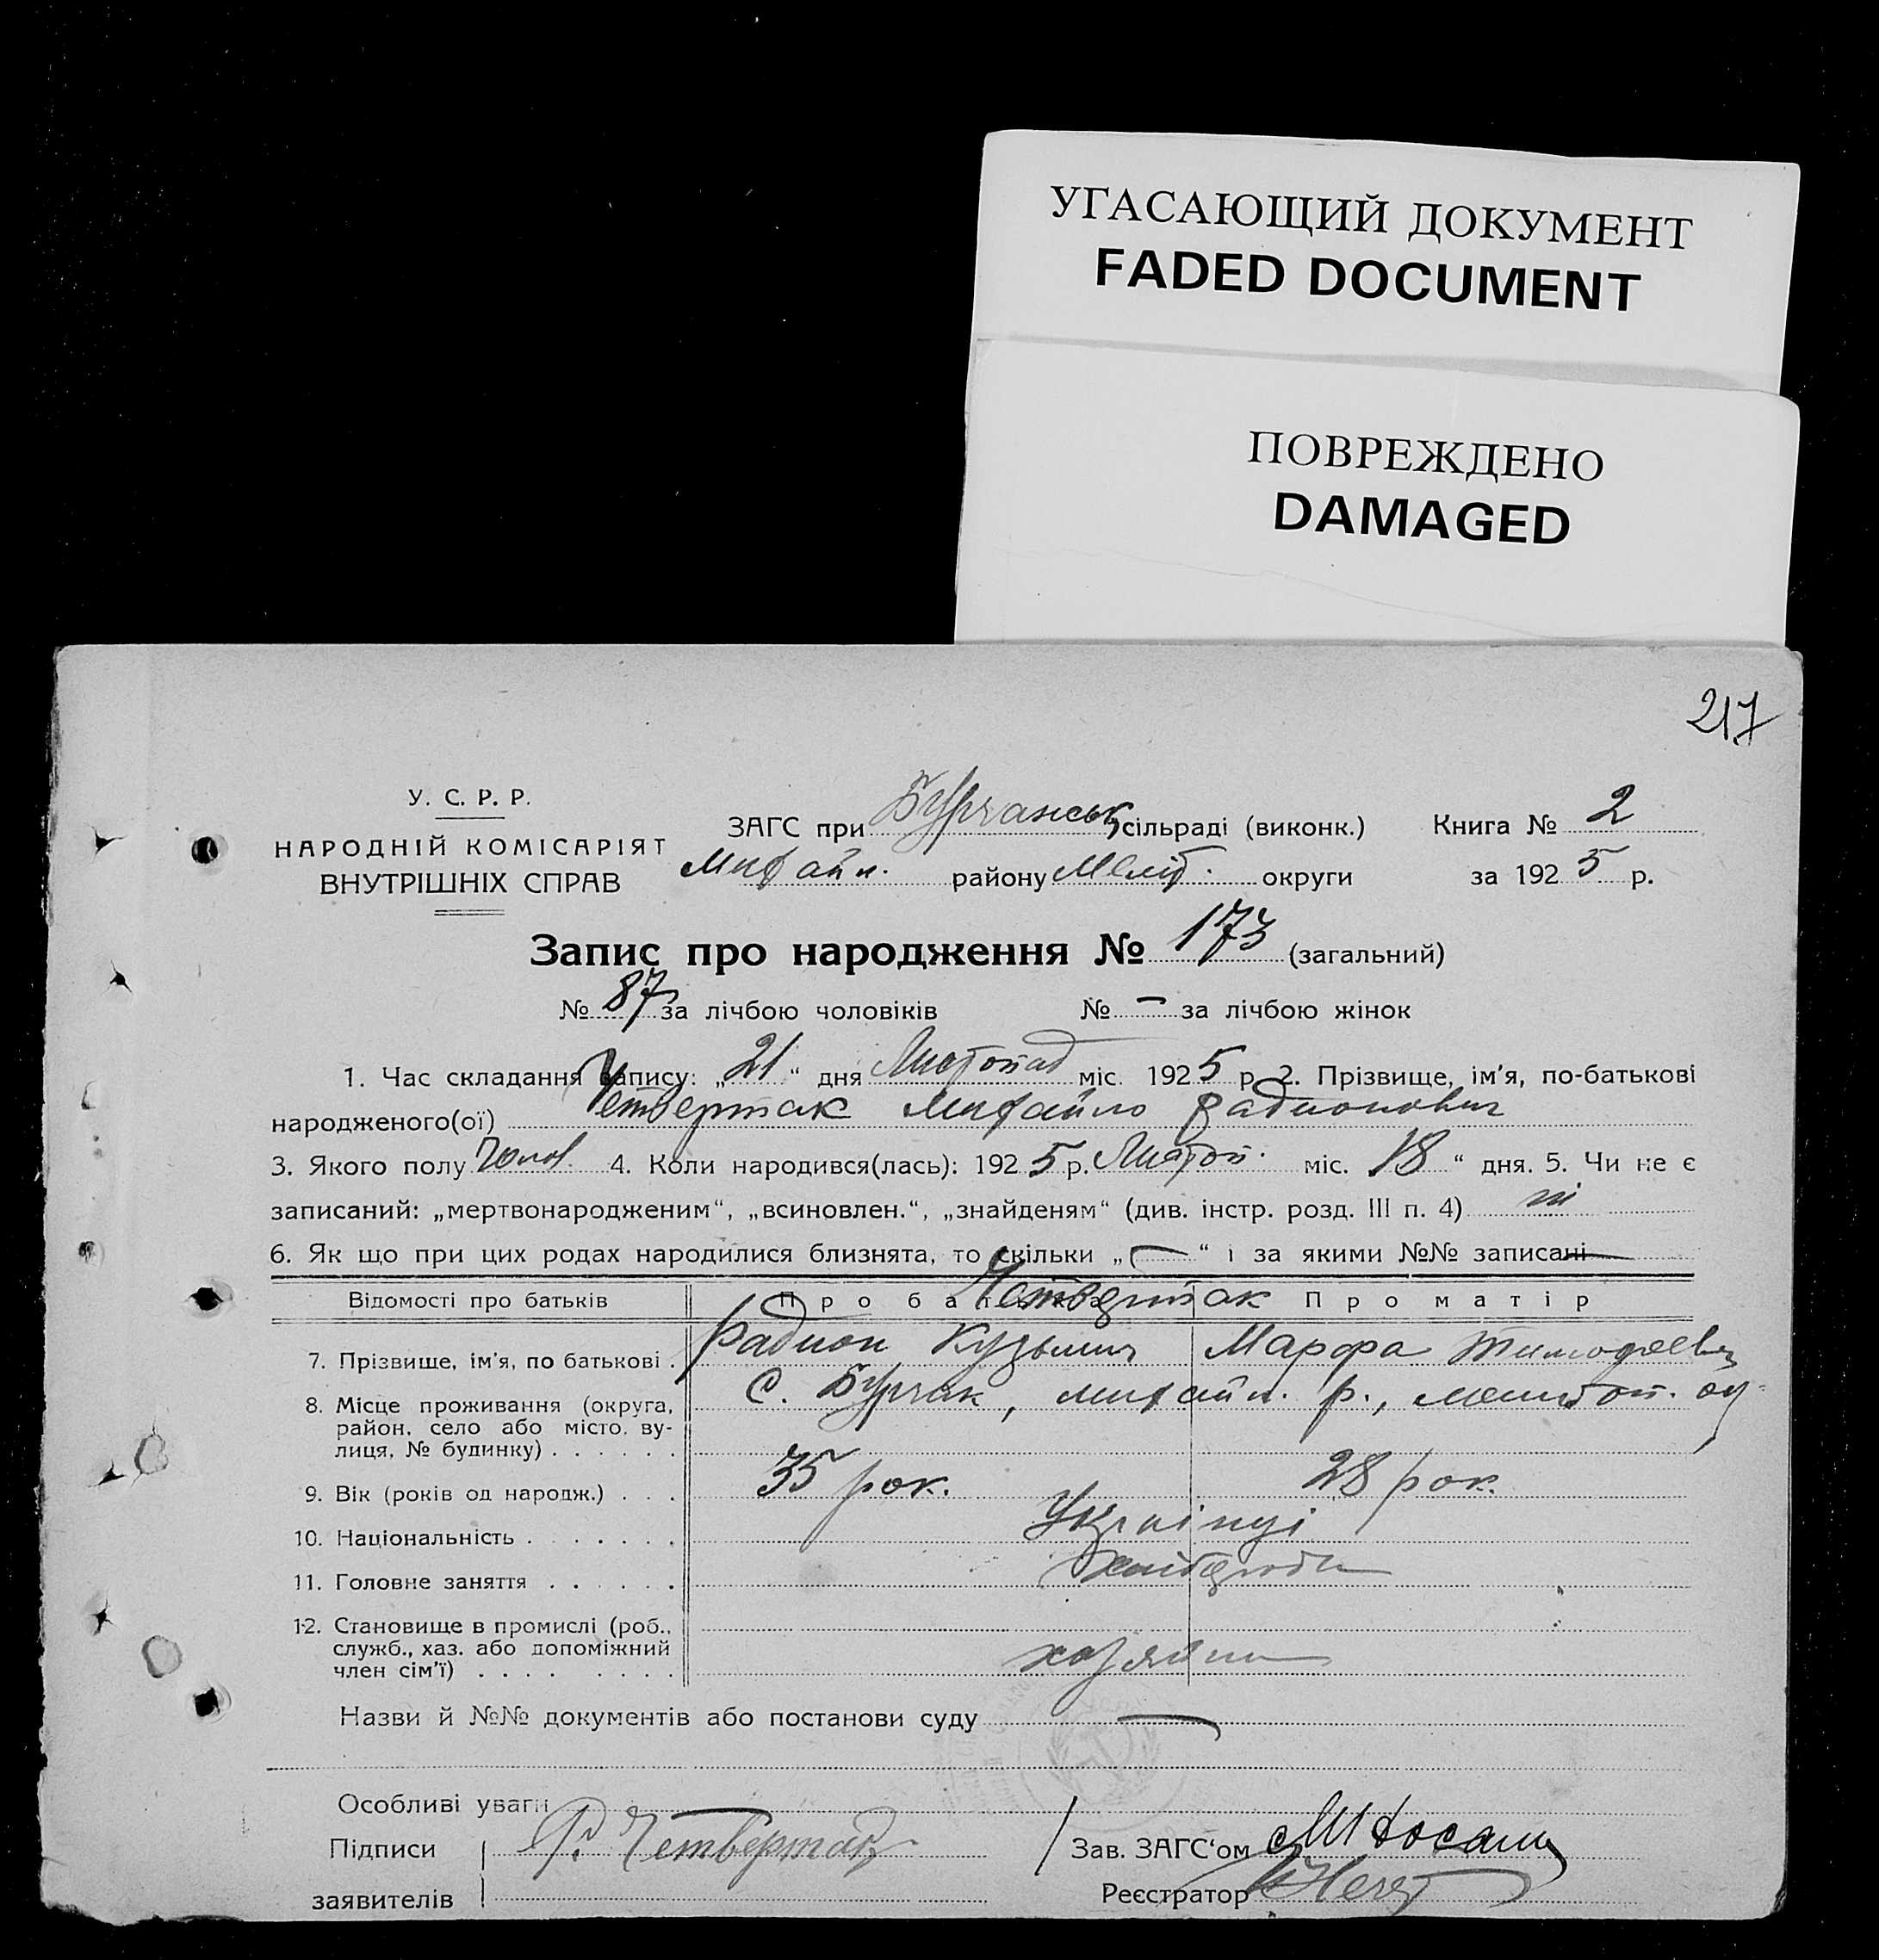 УГАСАЮЩИЙ ДОКУМЕНТ
FADED DOCUMENT
ПОВРЕЖДЕНО
DAMAGED
217
У. С. Р. Р.
НАРОДНІЙ КОМІСАРІЯТ
ВНУТРІШНІХ СПРАВ
ЗАГС при Бурчанськ сільраді (виконк.) Книга № 2
Михайл. району Меліт. округи за 1925 р.
Запис про народження № 173 (загальний)
№ 87 за лічбою чоловіків № – за лічбою жінок
1. Час складання запису: „21“ дня Листопад міс. 1925 р. 2. Прізвище, ім'я, по-батькові
народженого(ої) Четвертак Михайло Радионович
3. Якого полу Чолов. 4. Коли народився(лась): 1925 р. Листоп. міс. 18“ дня. 5. Чи не є
записаний: „мертвонародженим“, „всиновлен.“, „знайденям“ (див. інстр. розд. III п. 4) ні
6. Як що при цих родах народилися близнята, то скільки „—“ і за якими №№ записані —
Відомості про батьків Про батька Про матір
Четвертак
7. Прізвище, ім'я, по батькові . Радион Кузьмич Марфа
8. Місце проживання (округа, С. Бурчак, михайл. р., мелитоп. ок
район, село або місто, ву-
лиця, № будинку) . . . . . .
9. Вік (років од народж.) . . . 35 рок. 28 рок.
10. Національність . . . . . . . Українці
11. Головне заняття . . . . . . хлібороби
12. Становище в промислі (роб.,
служб., хаз. або допоміжний
член сім'ї) . . . . . . . . хозяїни
Назви й №№ документів або постанови суду —
Особливі уваги —
Підписи Р. Четвертак Зав. ЗАГС'ом
заявителів Реєстратор